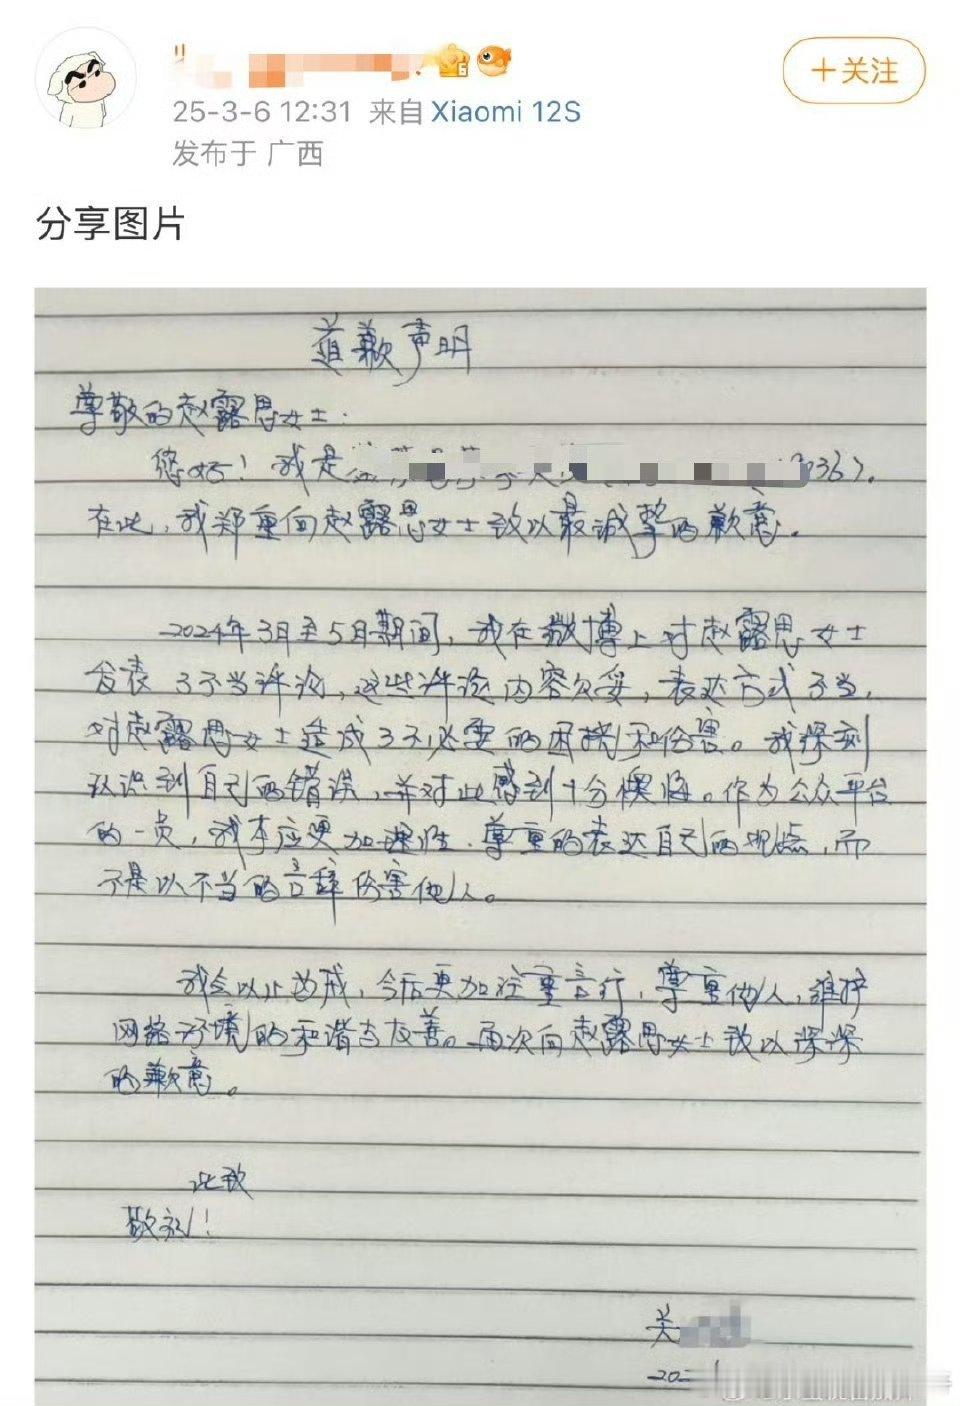 25-3-6 12:31 来自 Xiaomi 12S
+关注
发布于 广西
分享图片
道歉声明
尊敬的赵露思女士:
您好!我是
在此,我郑重向赵露思女士致以最诚挚的歉意.
2024年3月至5月期间,我在微博上对赵露思女士
发表了不当评论,这些评论内容欠妥,表达方式不当,
对赵露思女士造成了不必要的困扰和伤害。我深刻
认识到自己的错误,并对此感到十分懊悔。作为公众平台
的一员,我本应更加理性、尊重的表达自己的观点,而
不是以不当的言辞伤害他人。
我会以此为戒,今后更加注重言行,尊重他人,维护
网络环境的和谐与友善。再次向赵露思女士致以深深
的歉意。
此致
敬礼!
关
202